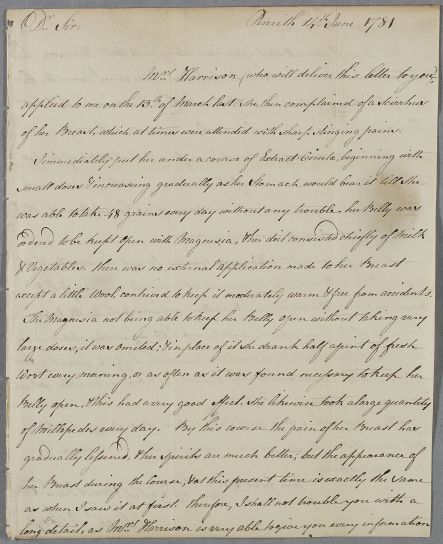 Dr. Sir, Penrith 14th June 1781
Mrs. Harrison (who will deliver this letter to you),
applied to me on the 13th of March last. She then complained of a Scirrhus
of her Breast, which at times were attended with sharp stinging pains.
I immediatly put her under a course of Extract Cicuta, beginning with
small doses & increasing gradually as her Stomach would bear it till She
was able to take 48 grains every day without any trouble. her Belly was
ordered to be kept open with Magnesia, & her diet consisted chiefly of Milk
& Vegetables. there was no external application made to her Breast
except a little Wool, contrived to keep it moderately warm & free from accidents.
The Magnesia not being able to keep her Belly open without taking very
large doses, it was omited, & in place of it she drank half a pint of fresh
Wort every morning, or as often as it was found necessary to keep her
Belly open, & this had a very good effect. She likewise took a large quantity
of Millepedes every day. By this course the pain of her Breast has
gradually lessened, & her spirits are much better, but the appearance of
her Breast during the Course, & at this present time is exactly the same
as when I saw it at first. therefore, I shall not trouble you with a
long detail, as Mrs. Harrison is very able to give you every information